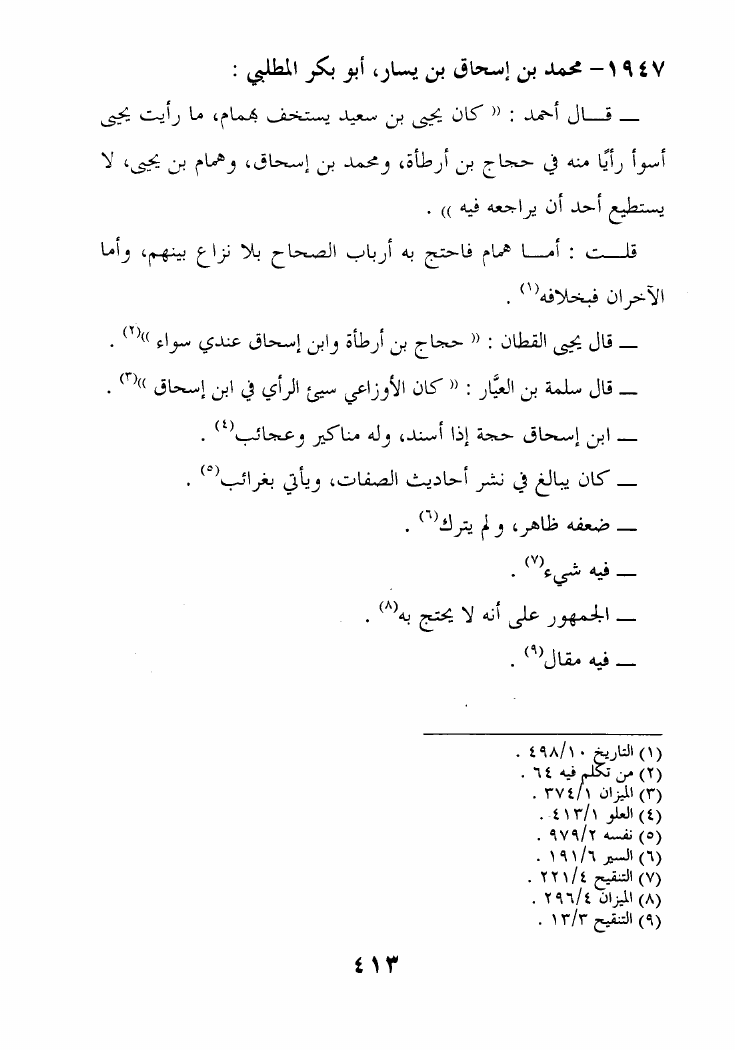 ١٩٤٧- محمد بن إسحاق بن يسار، أبو بكر المطلبي :
ــ قــال أحمد : (( كان يحيى بن سعيد يستخف بهمام، ما رأيت يحيى
أسوأ رأيًا منه في حجاج بن أرطأة، ومحمد بن إسحاق، وهمام بن يحيى، لا
يستطيع أحد أن يراجعه فيه )) .
قلــت : أمــا همام فاحتج به أرباب الصحاح بلا نزاع بينهم، وأما
الآخران فبخلافه(١) .
ــ قال يحيى القطان : (( حجاج بن أرطأة وابن إسحاق عندي سواء ))(٢) .
ــ قال سلمة بن العيَّار : (( كان الأوزاعي سيئ الرأي في ابن إسحاق ))(٣) .
ــ ابن إسحاق حجة إذا أسند، وله مناكير وعجائب(٤) .
ــ كان يبالغ في نشر أحاديث الصفات، ويأتي بغرائب(٥) .
ــ ضعفه ظاهر، ولم يترك(٦) .
ــ فيه شيء(٧) .
ــ الجمهور على أنه لا يحتج به(٨) .
ــ فيه مقال(٩) .
(١) التاريخ ٤٩٨/١٠ .
(٢) من تكلم فيه ٦٤ .
(٣) الميزان ٣٧٤/١ .
(٤) العلو ٤١٣/١ .
(٥) نفسه ٩٧٩/٢ .
(٦) السير ١٩١/٦ .
(٧) التنقيح ٢٢١/٤ .
(٨) الميزان ٢٩٦/٤ .
(٩) التنقيح ١٣/٣ .
٤١٣